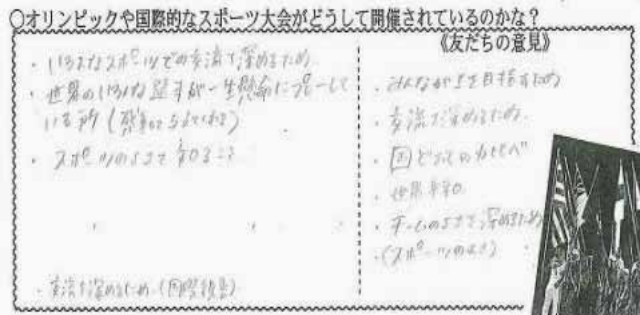 ○オリンピックや国際的なスポーツ大会がどうして開催されているのかな？
・いろいろなスポーツでの交流で深めるため
・世界のいろんな選手が一生懸命にプレーして
いる所(感動を与えてくれる)
・スポーツのよさを知ること
・交流を深めるため(国際
《友だちの意見》
・みんなが上を目指すため
・交流で深めるため
・国どうしの力くらべ
・世界平和
・チームのよさを深めるため
・(スポーツのよさ)